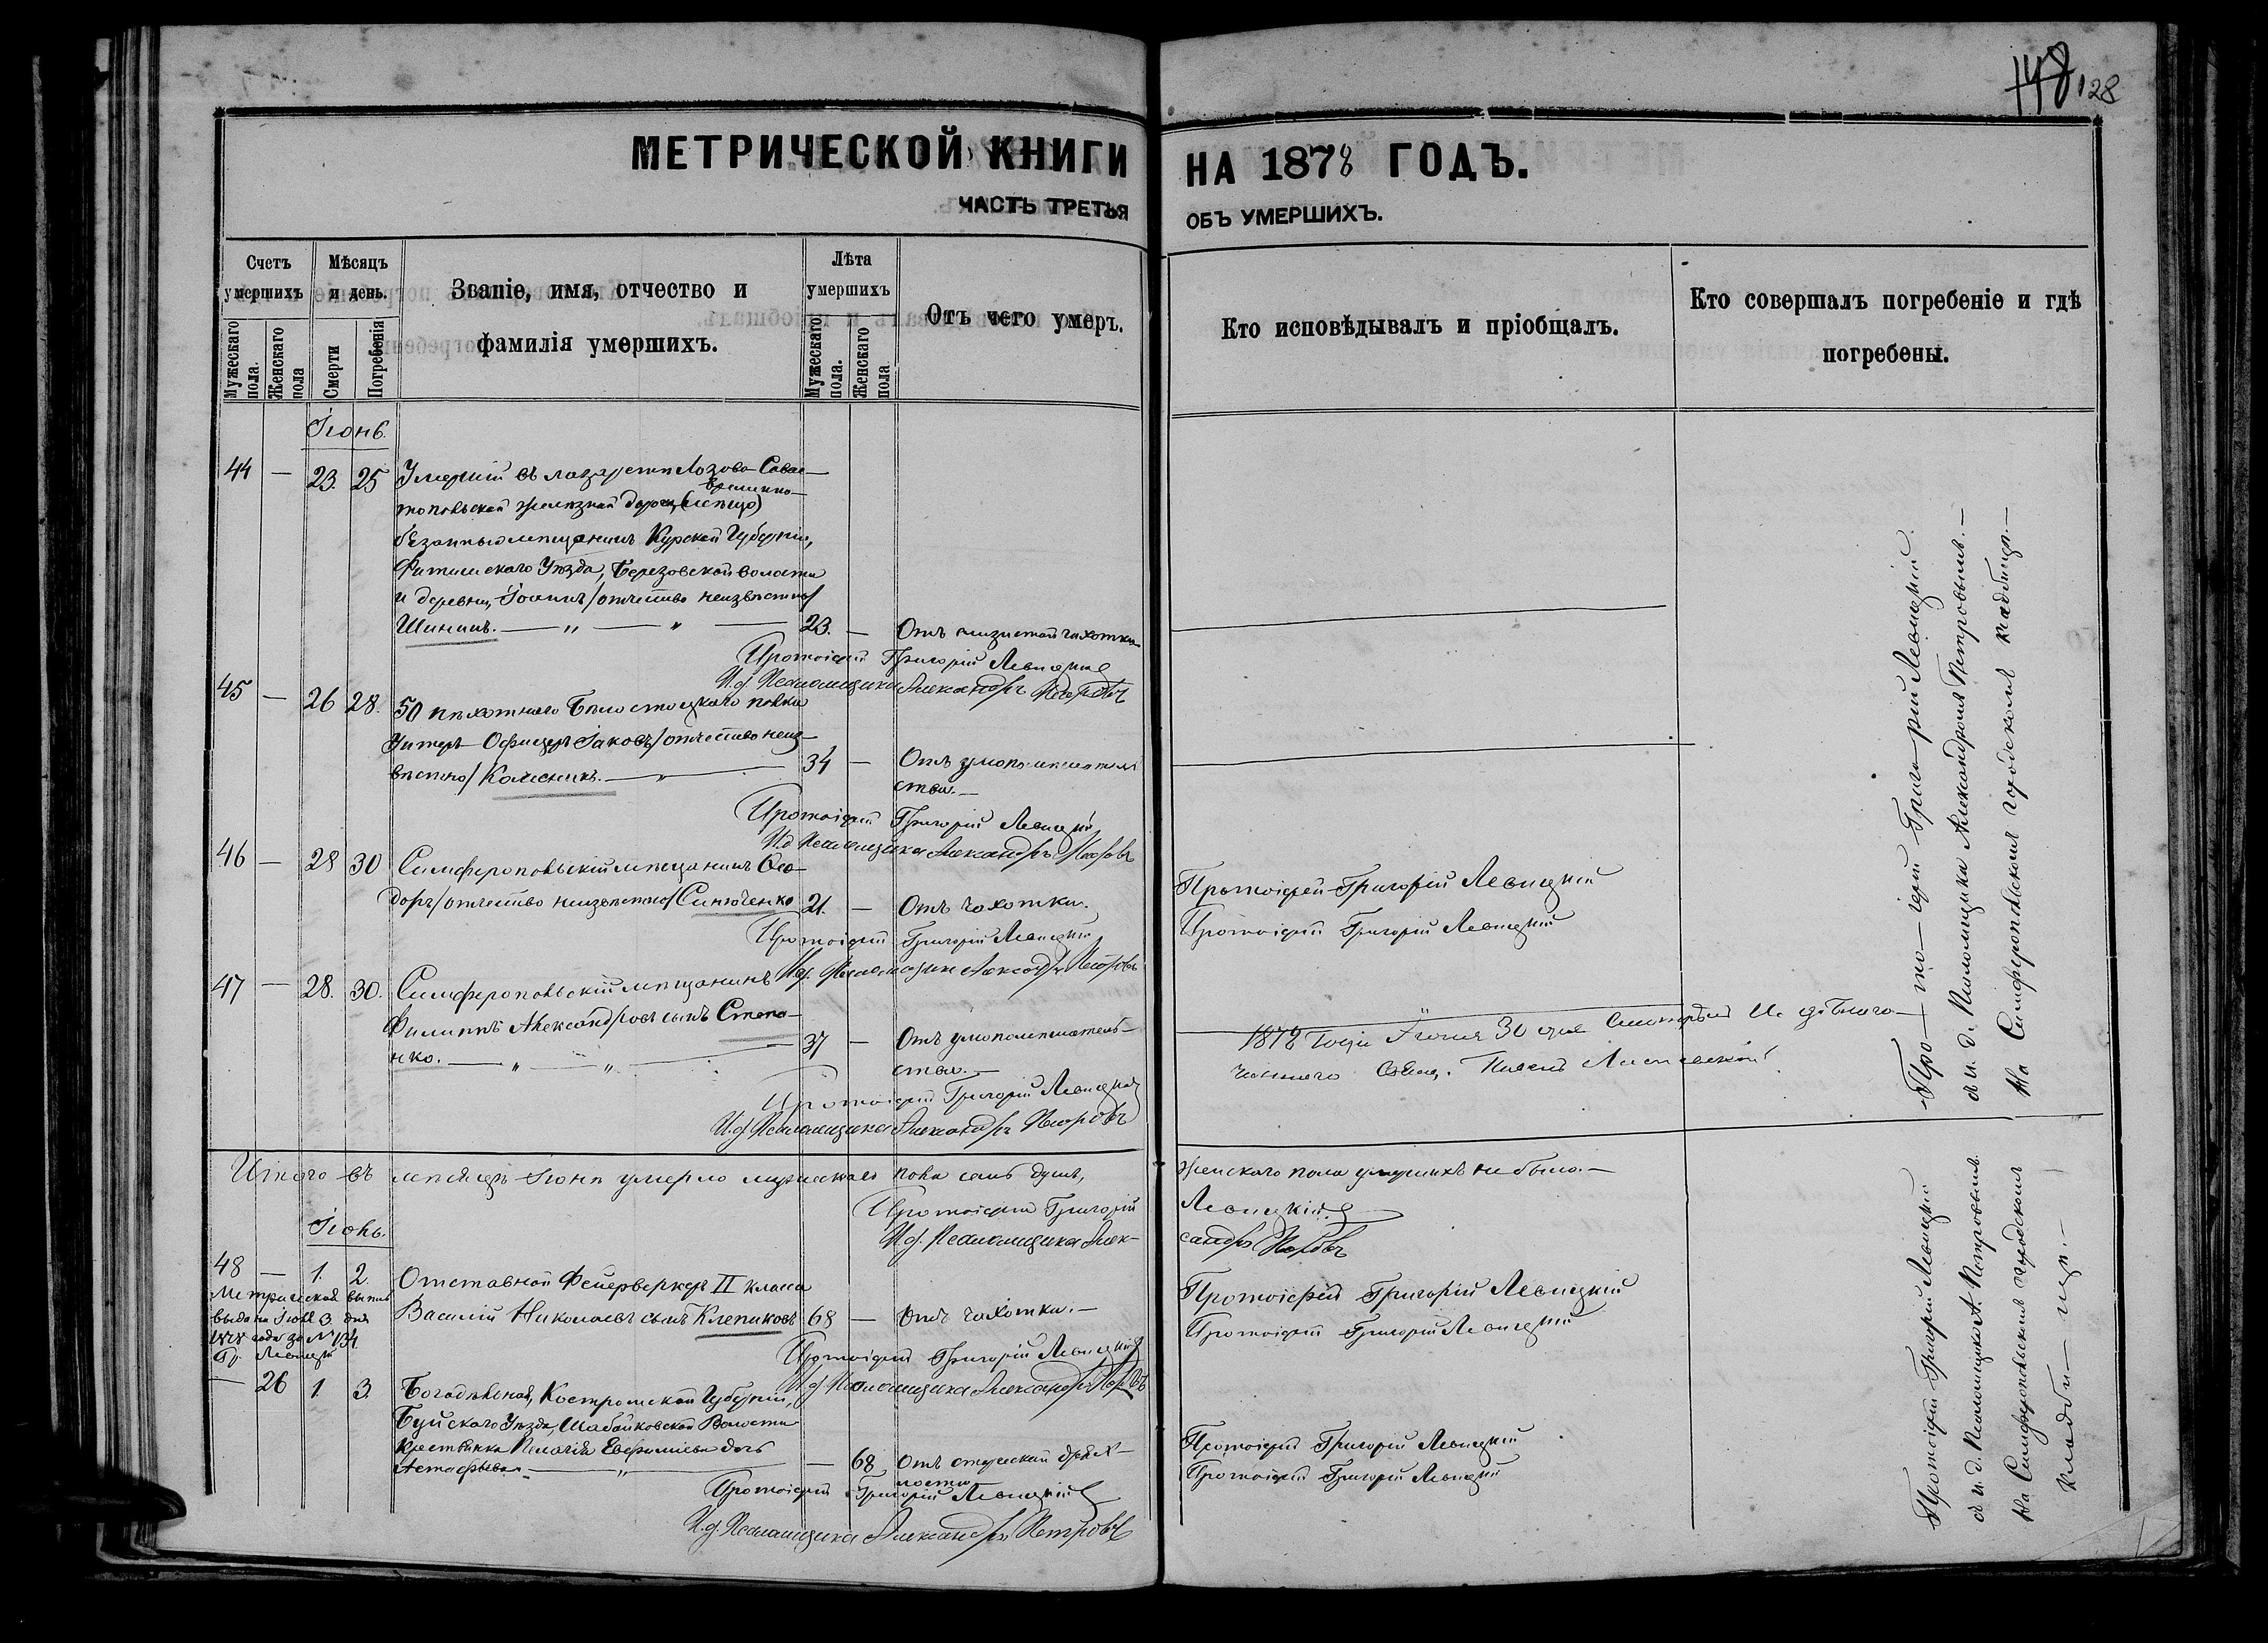 148 128
МЕТРИЧЕСКОЙ КНИГИ НА 1878 ГОДЪ.
ЧАСТЬ ТРЕТЬЯ ОБЪ УМЕРШИХЪ.
Счетъ умершихъ
Мужескаго пола.
Женскаго пола
Мѣсяцъ и день.
Смерти
Погребенія
Званіе, имя, отчество и
фамилія умершихъ.
Лѣта умершихъ
Мужескаго пола.
Женскаго пола
Отъ чего умеръ.
Кто исповѣдывалъ и пріобщалъ.
Кто совершалъ погребеніе и гдѣ
погребены.
Іюнь.
44 — 23. 25 Умершій въ лазаретѣ Лозово-Севас-
топольской желѣзной дороги
Курской Губерніи,
Уѣзда, Березовской волости
и деревни, Іоаннъ /отчество неизвѣстно/
Шининъ. — „ — „ — 23. — Отъ чахотки
Протоіерей Григорій Левицкій
И.д. Псаломщика Александръ Петровъ
45 — 26 28. 50 пѣхотнаго Бѣлостокскаго полка
Унтеръ-Офицеръ Іаковъ /отчество неиз-
вѣстно/ Колесникъ. — „ — 34 — Отъ умопомѣшатель
ства. —
Протоіерей Григорій Левицкій
И.д. Псаломщика Александръ Петровъ
46 — 28 30 Симферопольскій мѣщанинъ Ѳео-
доръ /отчество неизвѣстно/ Синюченко 21. — Отъ чахотки.
Протоіерей Григорій Левицкій
Протоіерей Григорій Левицкій
Протоіерей Григорій Левицкій
И.д. Псаломщика Александръ Петровъ
47 — 28. 30. Симферопольскій мѣщанинъ
Филиппъ Александровъ сынъ Степа-
нко. — „ — „ — 37 — Отъ умопомѣшатель-
ства. —
1878 Года Іюня 30 дня
Протоіерей Григорій Левицкій
И.д. Псаломщика Александръ Петровъ
Протоіерей Григорій Левицкій
съ и. д. Псаломщика Александромъ Петровымъ. —
На Симферопольскомъ городскомъ кладбищѣ. —
Итого въ мѣсяцѣ Іюнѣ умерло мужескаго пола семь душъ, женскаго пола умершихъ не было. —
Протоіерей Григорій Левицкій.
И.д. Псаломщика Александръ Петровъ
Іюль.
48 — 1. 2. Отставной Фейерверкеръ II класса
Василій Николаевъ сынъ Клепиковъ 68 — Отъ чахотки. —
Протоіерей Григорій Левицкій
Протоіерей Григорій Левицкій
выдана Іюля 3 дня
1878 года за № 134
Гр. Левицкій
Протоіерей Григорій Левицкій
И.д. Псаломщика Александръ Петровъ
— 26 1. 3. Богадѣльная, Костромской Губерніи,
Буйскаго Уѣзда, Шабановской Волости
Крестьянка Пелагія Евфиміева дочь
Астафьева — „ — 68 Отъ старческой дрях-
лости
Протоіерей Григорій Левицкій
Протоіерей Григорій Левицкій
Протоіерей Григорій Левицкій
И.д. Псаломщика Александръ Петровъ
Протоіерей Григорій Левицкій
съ и. д. Псаломщика А. Петровымъ.
На Симферопольскомъ городскомъ
кладби—щѣ. —